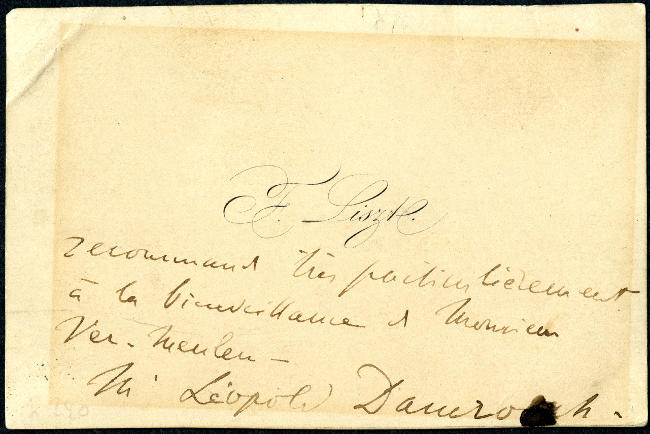 F. Liszt.
recommande très particulièrement
à la bienveillance de Monsieur
Ver-Meulen –
Mr Léopold Damrosch.